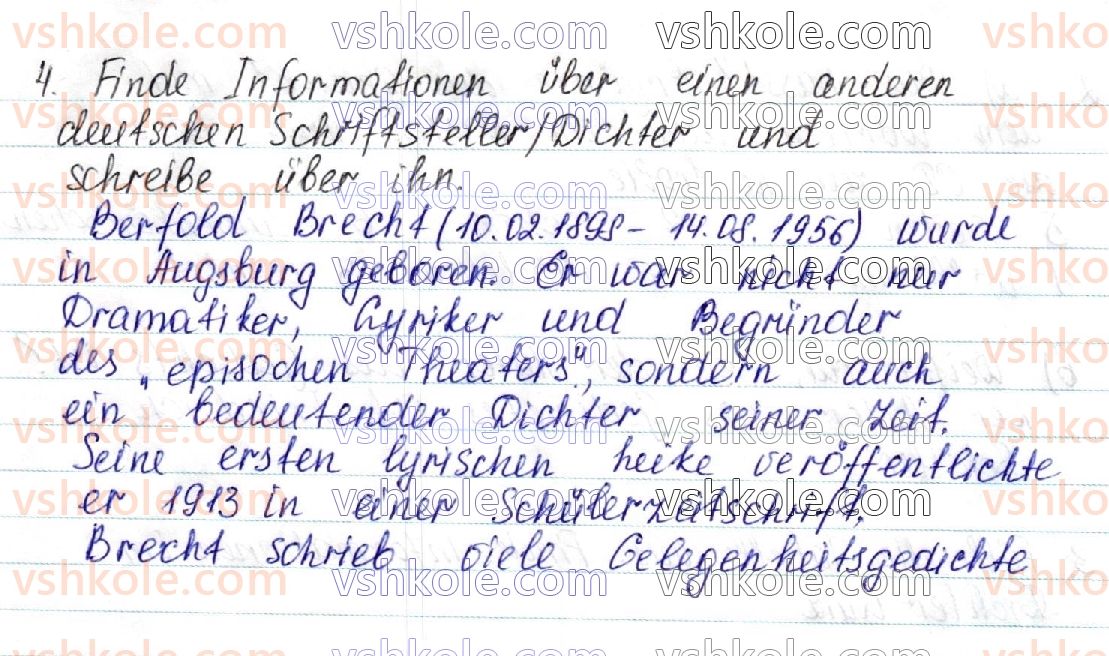 4. Finde Informationen über einen anderen
deutschen Schriftsteller/Dichter und
schreibe über ihn.
Bertold Brecht (10.02.1898 – 14.08.1956) wurde
in Augsburg geboren. Er war nicht nur
Dramatiker, Lyriker und Begründer
des „epischen Theaters“, sondern auch
ein bedeutender Dichter seiner Zeit.
Seine ersten lyrischen Werke veröffentlichte
er 1913 in einer Schülerzeitschrift.
Brecht schrieb viele Gelegenheitsgedichte
vshkole.com